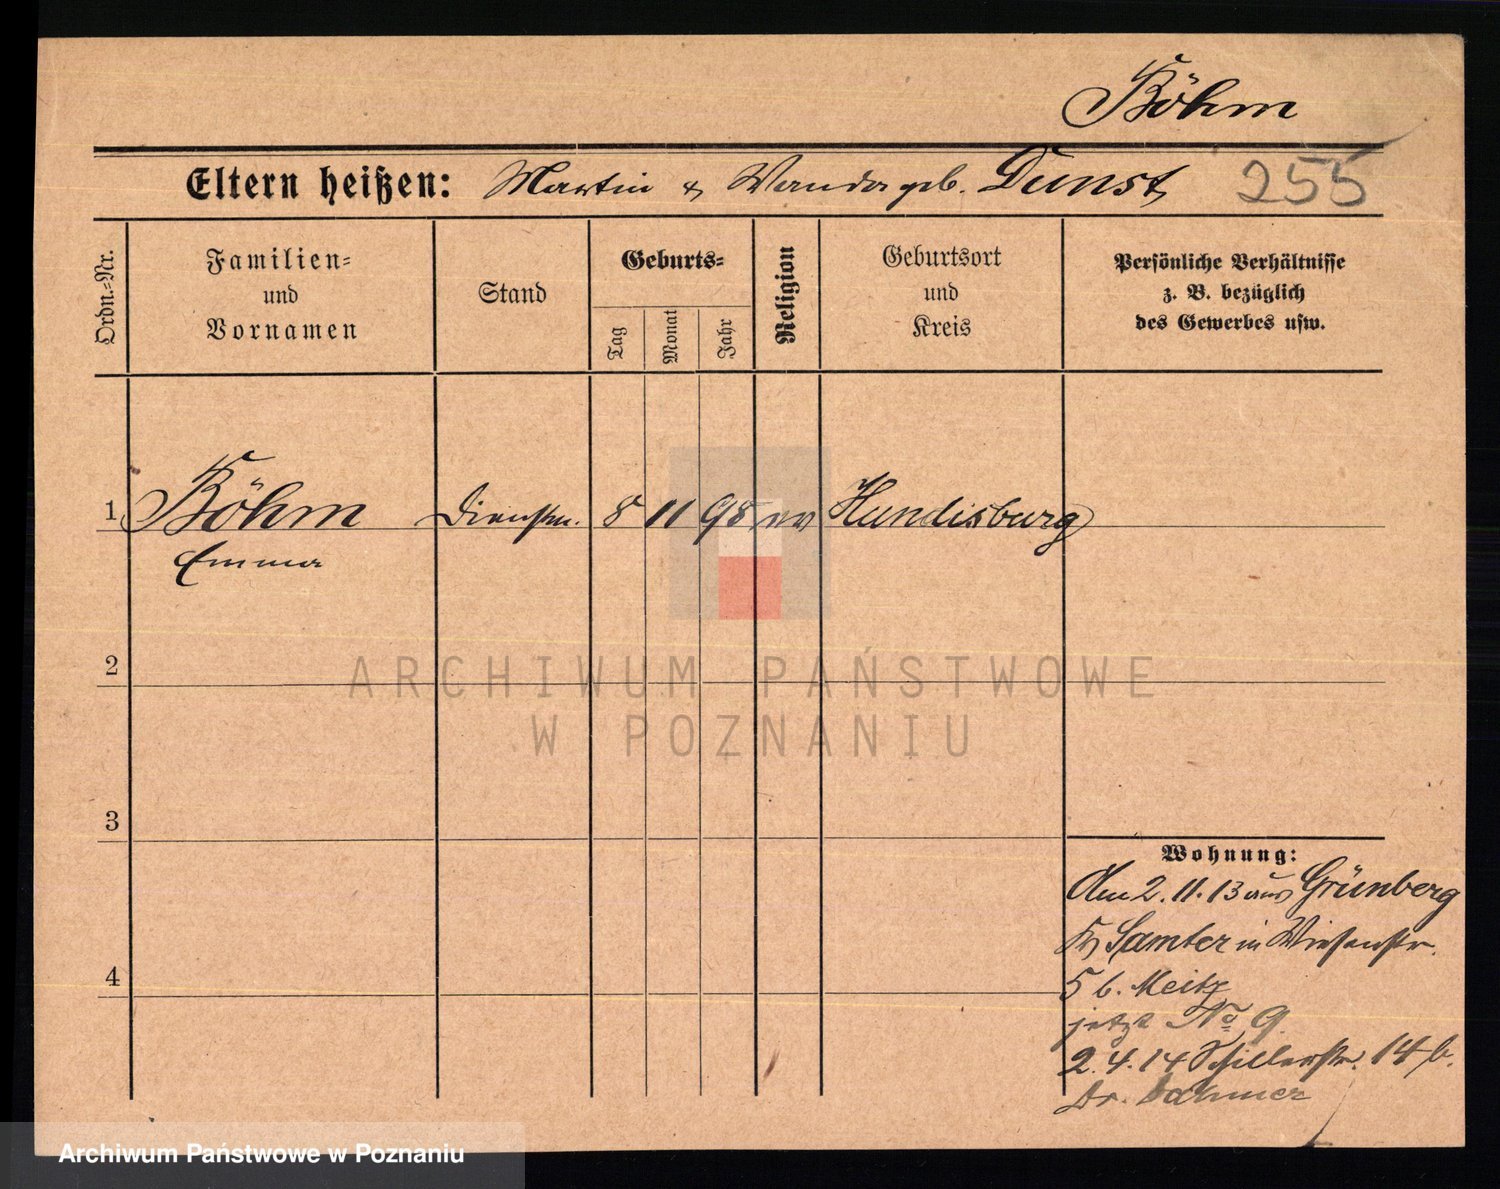 Böhm
Eltern heißen: Martin & Wanda geb. Dunst 255
Ordn.=Nr.
Familien=
und
Vornamen
Stand
Geburts=
Tag
Monat
Jahr
Religion
Geburtsort
und
Kreis
Persönliche Verhältnisse
z. B. bezüglich
des Gewerbes usw.
1 Böhm Dienstm. 8 11 98 ev Hundisburg
Emma
2
3
4
ARCHIWUM PAŃSTWOWE
W POZNANIU
Wohnung:
Am 2.11.13 aus Grünberg
Kr Samter in Wiesenstr.
5 b.
jetzt No 9
2.4.14 Schillerstr. 14 b.
Dr.
Archiwum Państwowe w Poznaniu